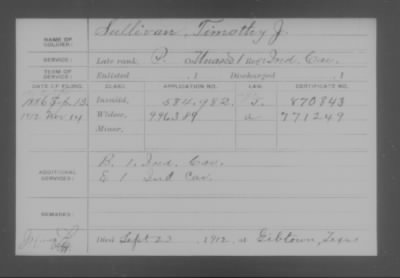 NAME OF SOLDIER: Sullivan, Timothy J.
SERVICE: Late rank, P. 1 Reg't Ind. Cav.
TERM OF SERVICE: Enlisted , 1 Discharged , 1
DATE OF FILING. CLASS. APPLICATION NO. LAW. CERTIFICATE NO.
1886 13 Invalid, 584,482 870843
1912 Nov 14 Widow, 996389 771249
Minor,
ADDITIONAL SERVICES: K. 1. Ind. Cav.
E 1 Ind Cav.
REMARKS:
Died Sept 23 1912, at Gibtown, Texas